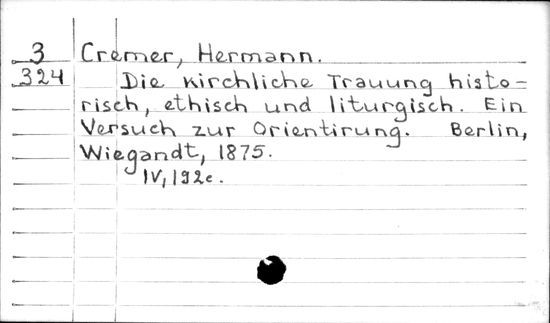 3 Cremer, Hermann.
324 Die kirchliche Trauung histo-
risch, ethisch und liturgisch. Ein
Versuch zur Orientirung. Berlin,
Wiegandt, 1875.
IV, 192c.